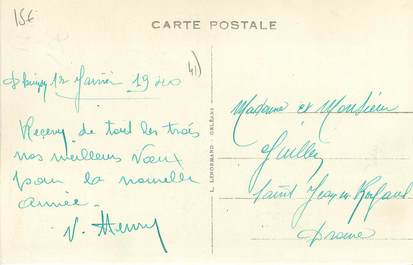 15€
CARTE POSTALE
41)
1er Janvier 1940
Recevez de tout les trois
nos meilleurs Vœux
pour la nouvelle
année.
V. Henry
L. LENORMAND. ORLÉANS
Madame et Monsieur
Saint Jean en Royans
Drome